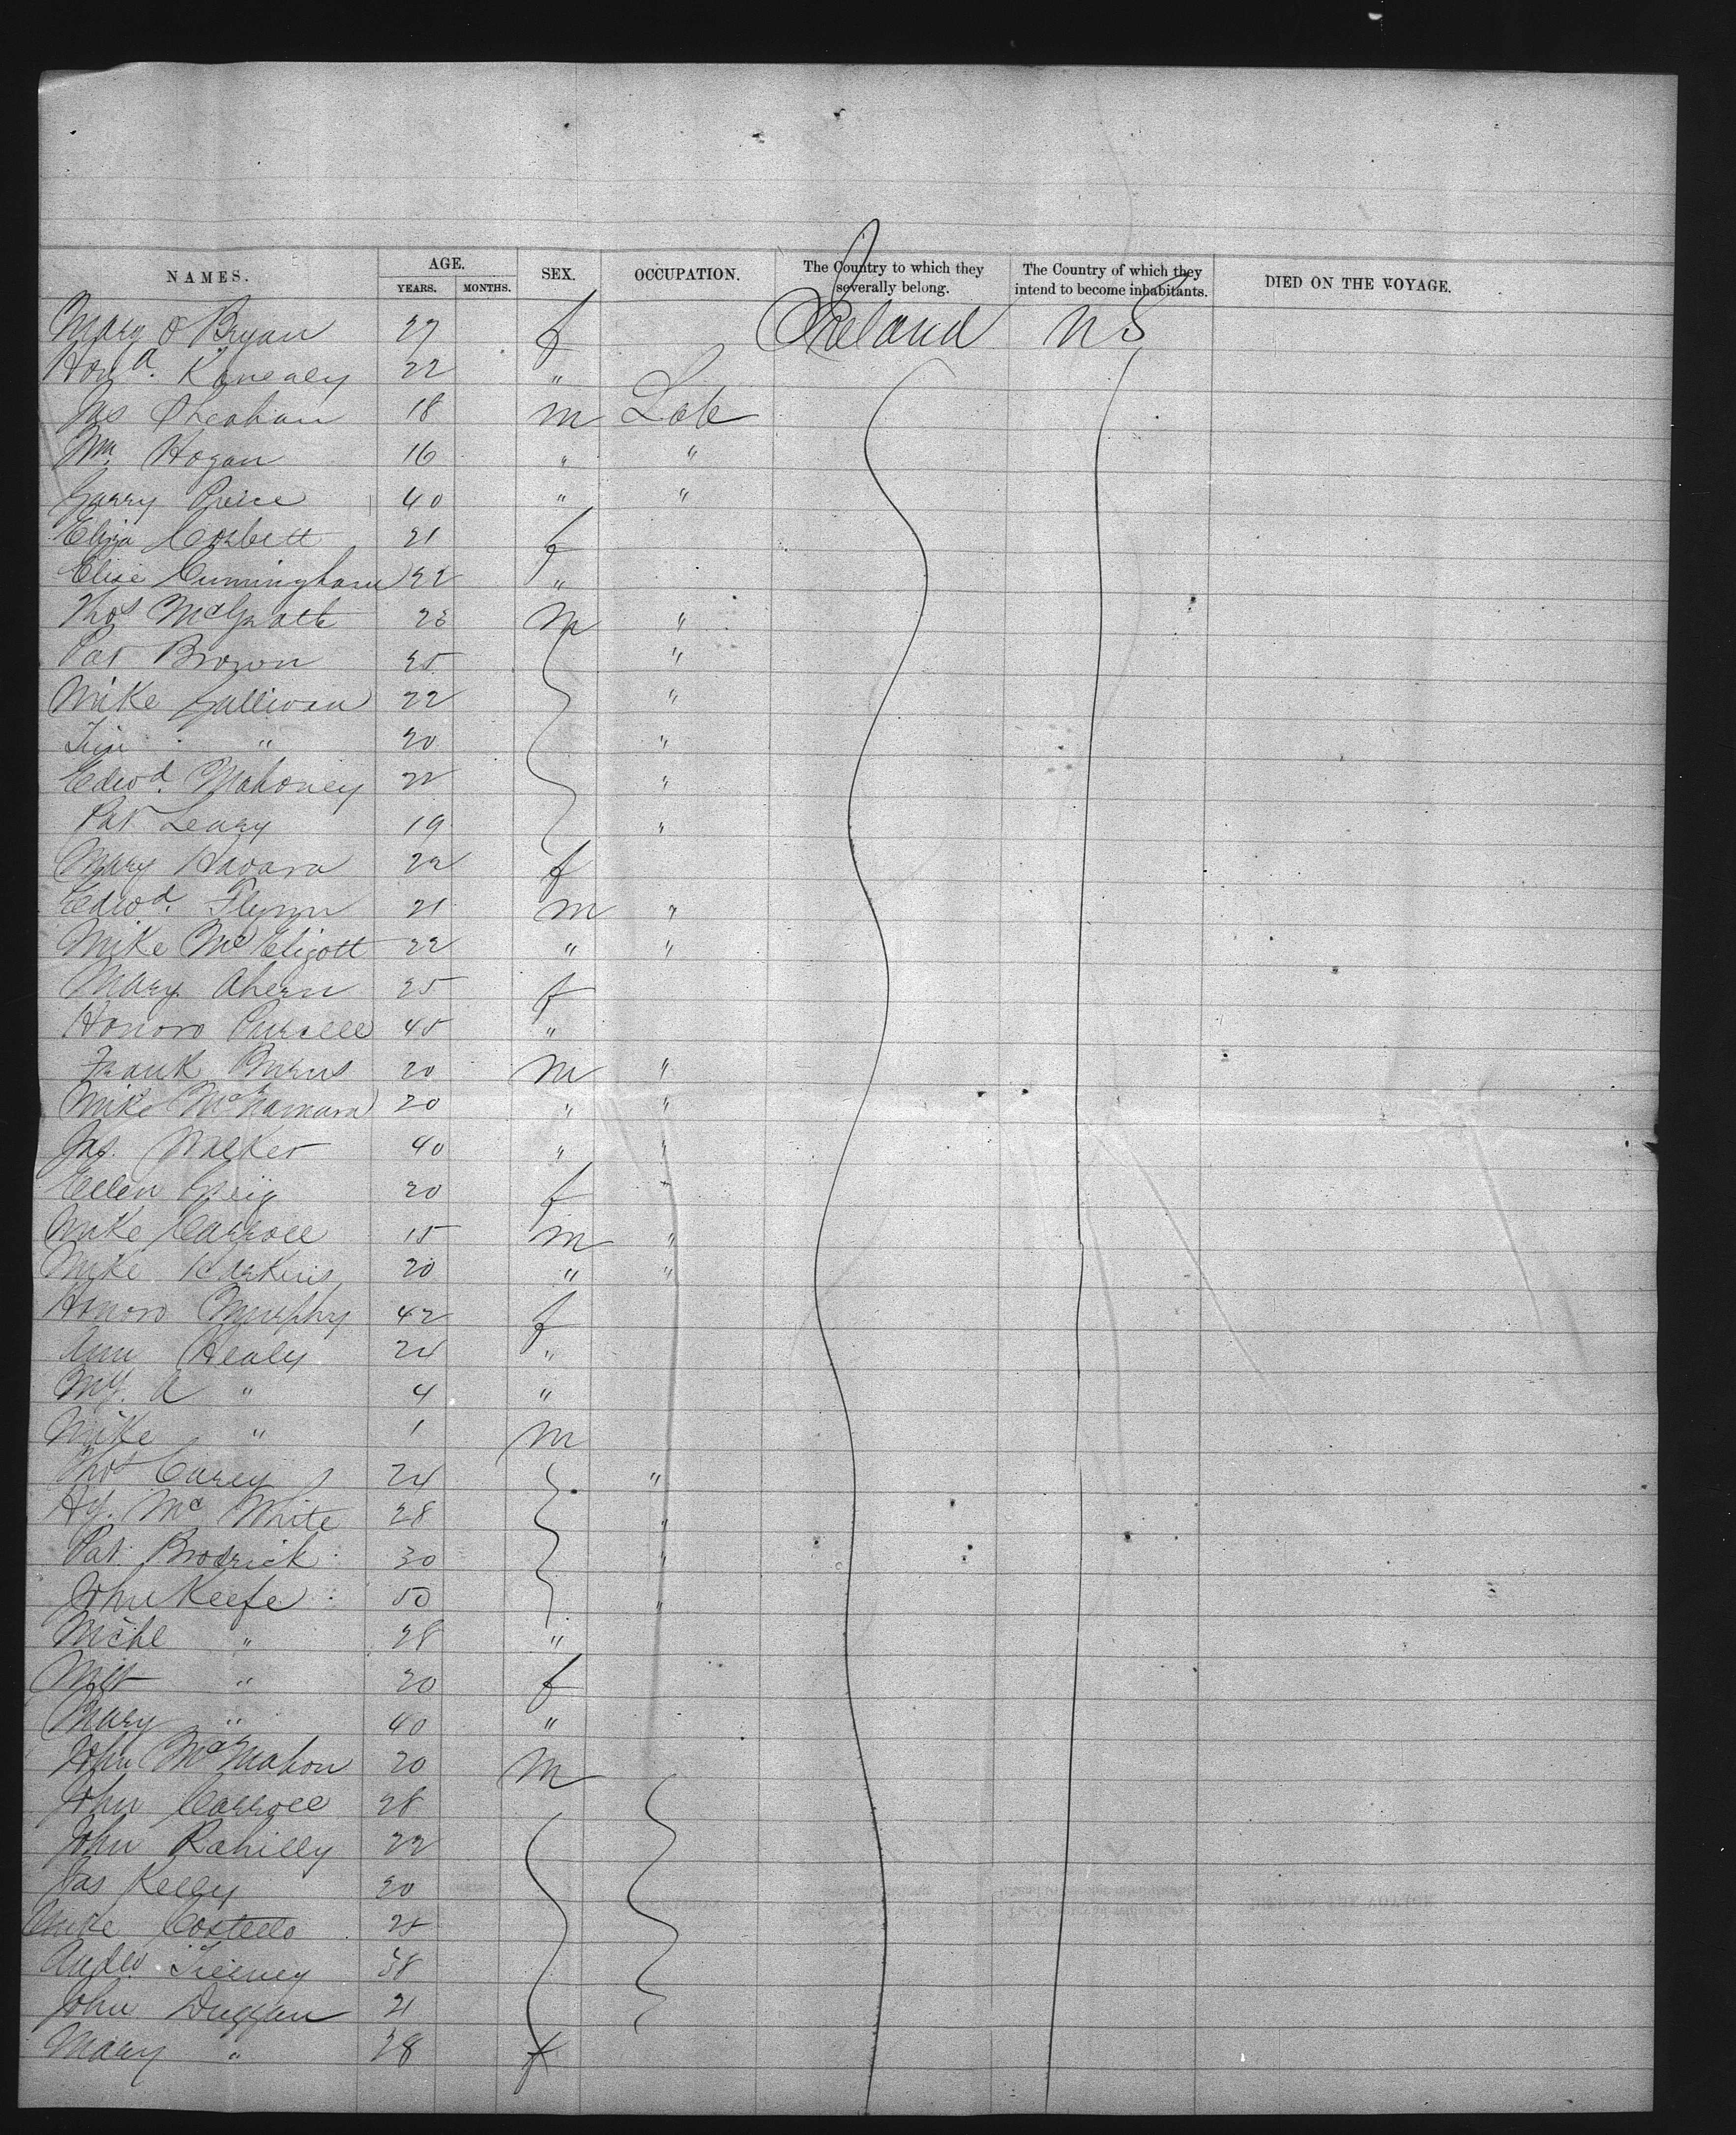 NAMES. AGE. SEX. OCCUPATION. The Country to which they severally belong. The Country of which they intend to become inhabitants. DIED ON THE VOYAGE.
YEARS. MONTHS.
Mary O Bryan 27 f Ireland U S
Hon.a Kenealy 22 "
Jas Sheahan 18 m Lab
Wm. Hogan 16 " "
Garry Price 40 " "
Eliza Corbett 21 f
Elise Cunningham 22 "
Thos McGrath 23 m "
Pat Brown 25 "
Mike Sullivan 22 "
Tim " 20 "
Edwd. Mahoney 22 "
Pat Leary 19 "
Mary 22 f
Edwd. Flynn 21 m "
Mike McEligott 22 " "
Mary Ahern 25 f
Honora Purcell 45 "
Frank Burns 20 m "
Mike McNamara 20 " "
Jas. Walker 40 " "
Ellen 20 f "
Mike Carroll 15 m "
Mike 20 " "
Honora Murphy 42 f
Ann Healy 24 "
My. A " 4 "
Mike " 1 m
Thos Carey 24 "
Hy. Mc White 28 "
Pat Brodrick 30 "
John Keefe 50 "
Michl " 28 "
" 20 f
Mary " 40 "
John McMahon 20 m
John Carroll 28
John Rahilly 22
Jas Kelly 20
Mike Costello 25
Andw. Tierney 38
John Duggan 21
Mary " 28 f